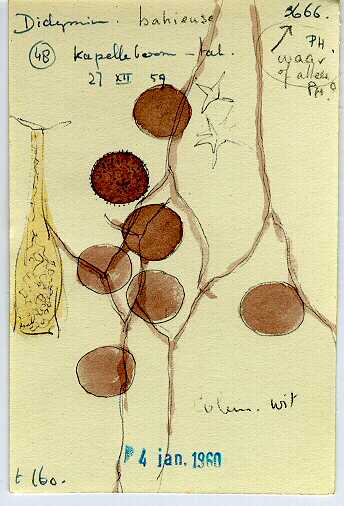 Didymium. bahiense
3666.
48 kapelleboom - tal.
27 XII 59
PH.
waar
of alleen
PH?
Colum. wit
4 jan. 1960
t 160.